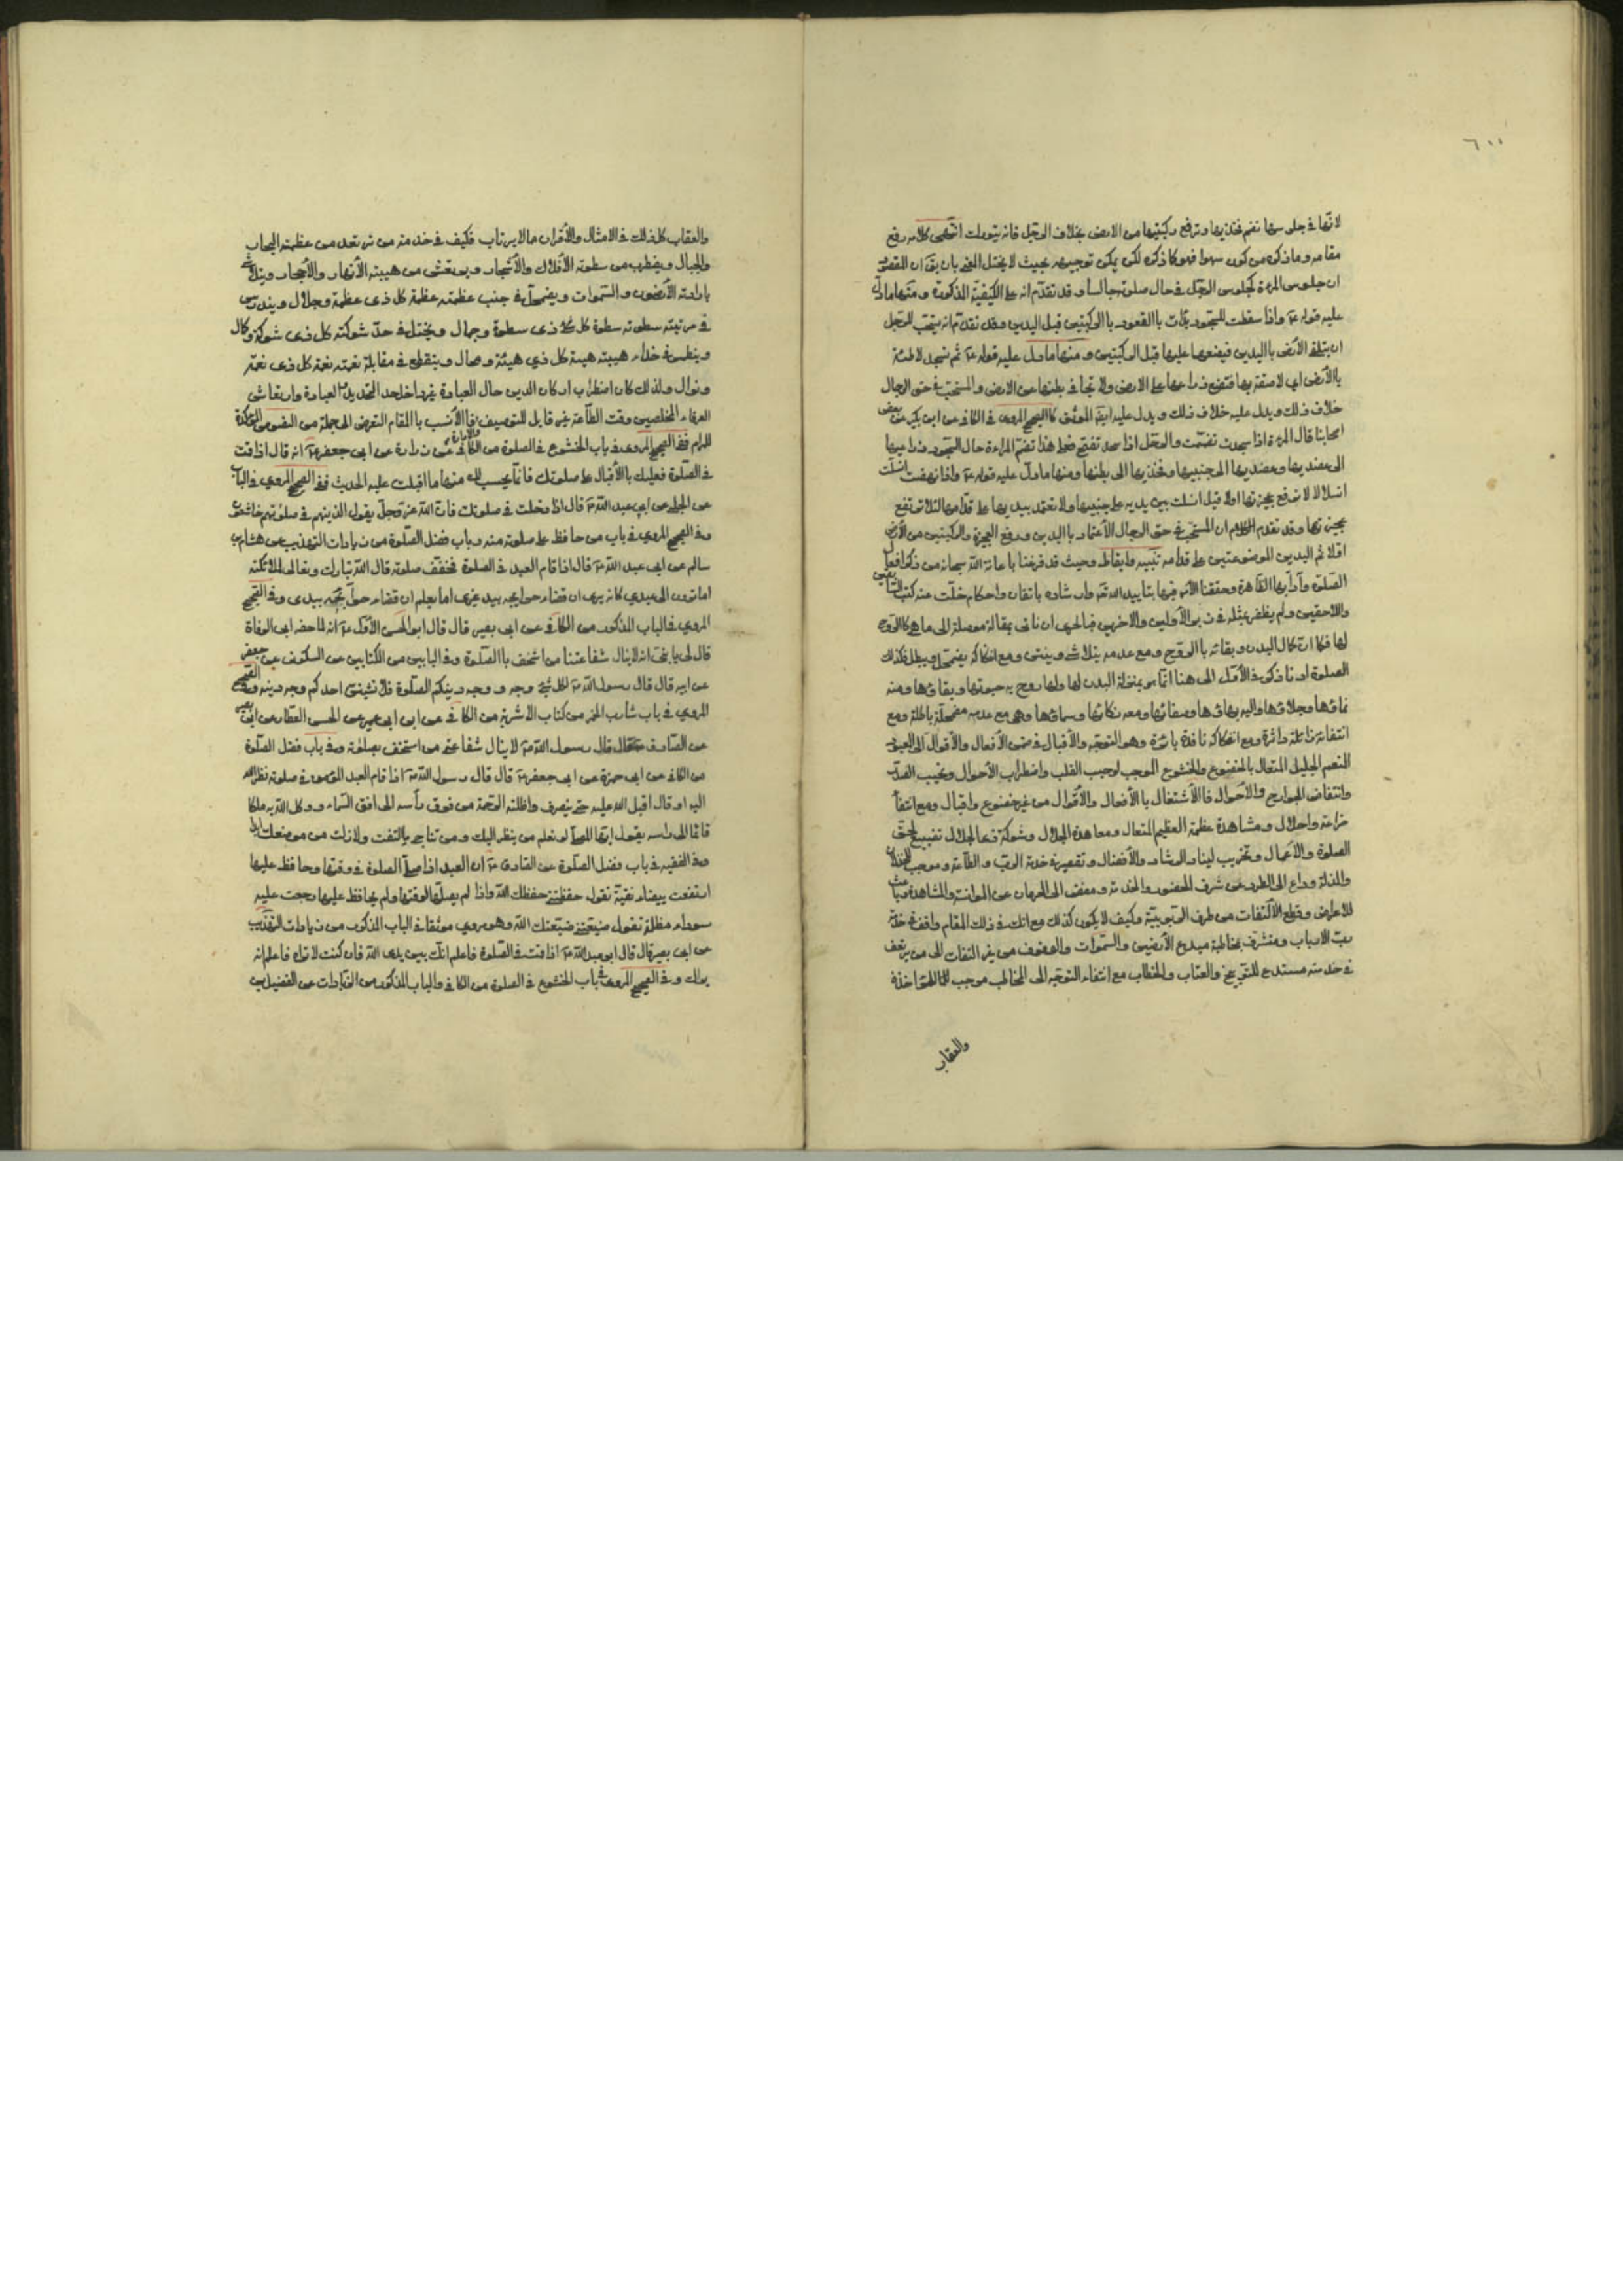 ٦٠٠
لانها في جلوسها تضم فخذيها وترفع ركبتيها من الارض بخلاف الرجل فانه يتورك انتهى كلامه رفع
مقامه وما ذكره من كون سهوا فهو كما ذكره لكن يمكن توجيهه بحيث لا يختل المعنى بان يق ان المقصود
ان جلوس المرءة كجلوس الرجل في حال صلوته جالسا وقد تقدم انه على الكيفية المذكورة ومنها ما دل
عليه قوله ع واذا سقطت للسجود بدات بالقعود بالركبتين قبل اليدين وقد تقدم انه يستحب للرجل
ان يتلقى الأرض باليدين فيضعهما عليها قبل الركبتين ومنها ما دل عليه قوله ع ثم تسجد لاطئة
بالأرض اي لاصقة بها فتضع ذراعيها على الارض ولا تجافي بطنها عن الارض والمستحب في حق الرجال
خلاف ذلك ويدل عليه خلاف ذلك ويدل عليه ايضا الموثق كالصحيح المروي في الكافي عن ابن بكير عن بعض
اصحابنا قال المرءة اذا سجدت تضممت والرجل اذا سجد تفتح فعلى هذا تضم المراءة حال السجود ذراعيها
الى عضديها وعضديها الى جنبيها وفخذيها الى بطنها ومنها ما دل عليه قوله ع واذا نهضت انسلت
انسلالا لا ترفع عجيزتها اولا قيل انسلت بين يديه على جنبيها ولا تعتمد بيديها على قدامها لئلا ترتفع
عجيزتها وقد تقدم الكلام ان المستحب في حق الرجال الاعتماد باليدين ورفع العجيزة والركبتين من الأرض
اولا ثم اليدين الموضوعتين على قدامه تنبيه وايقاظ وحيث قد فرغنا باعانة الله سبحانه من ذكر افعال
الصلوة وآدابها الظاهرة وحققنا الأمر فيها بتاييد الله تعه وارشاده باتقان واحكام خلت عنه كتب السابقين
واللاحقين ولم يظفر بمثله في زبر الأولين والاخرين فبالحري ان ناتي بمقالة موصلة الى ما هو كالروح
لها فكما ان كمال البدن وبقائه بالروح ومع عدمه يتلاشى ويفنى ومع انفكاكه يضمحل ويبطل فكذلك
الصلوة اذ ما ذكر في الأول الى هنا انما هو بمنزلة البدن لها ولها روح به حيوتها وبقاؤها ومنه
نماؤها وجلاؤها واليه بهاؤها وصفائها ومعه زكائها وسماؤها وهي مع عدمه مضمحلة باطلة ومع
انتفائه زائلة داثرة ومع انفكاكه نافدة بائرة وهو التوجه والأقبال في ضمن الأفعال والأقوال الى المعبود
المنعم الجليل المتعال بالخضوع والخشوع الموجب لوجيب القلب واضطراب الأحوال ونحيب الصدر
وانتفاض الجوارح والاحوال فالاشتغال بالأفعال والأقوال من غير خضوع واقبال ومع انتفاء
ضراعة واجلال ومشاهدة عظمة العظيم المتعال ومعاهدة الجلال وشوكة ذي الجلال تضييع لحق
الصلوة والاعمال وتخريب لبناء الرشاد والأفضال وتقصير في خدمة الرب والطاعة وموجب للخذلان
والمذلة وداع الى الطرد عن شرف الحضور والخدمة ومفض الى الحرمان عن الموانسة والمشاهدة وباعث
للاعراض وقطع الالتفات من طرف الربوبية وكيف لا يكون كذلك مع انك في ذلك المقام واقف في خدمة
رب الارباب ومتشرف بمخاطبة مبدع الأرضين والسموات والوقوف من غير التفات الى من يقف
في خدمته مستدع للتقريع والعتاب والخطاب مع انتفاء التوجه الى المخاطب موجب للمؤاخذة
والعقاب
والعقاب كل ذلك في الامثال والأقران مما لا يرتاب فكيف في خدمة من ترتعد من عظمته السحاب
والجبال ويضطرب من سطوته الأفلاك والأشجار ويرتعش من هيبته الأنهار والأحجار ويتلاشى
بارادته الأرضون والسموات ويضمحل في جنب عظمته عظمة كل ذي عظمة وجلال ويندرس
في مرتبة سطوته سطوة كل ذي سطوة وجمال ويختل في حد شوكته كل ذي شوكة وكمال
وينطمس في حذاء هيبته هيبة كل ذي هيئة وصال وينقطع في مقابلة نعمته نعمة كل ذي نعمة
ونوال ولذلك كان اضطراب اركان الدين حال العبادة غير داخل حد التحديد العبادة وارتعاش
العرفاء المخلصين وقت الطاعة غير قابل للتوصيف فالأنسب بالمقام التعرض الى جملة من النصوص المؤكدة
للمرام ففي الصحيح المروي في باب الخشوع في الصلوة من الكافي عن زرارة عن ابي جعفر ع انه قال اذا قمت
في الصلوة فعليك بالاقبال على صلوتك فانما يحسب لك منها ما اقبلت عليه الحديث ففي الصحيح المروي في الباب
عن الحلبي عن ابي عبد الله ع قال اذا دخلت في صلوتك فان الله عز وجل يقول الذين هم في صلوتهم خاشعون
وفي الصحيح المروي في باب من حافظ على صلوته منه وباب فضل الصلوة من زيادات التهذيب عن هشام بن
سالم عن ابي عبد الله ع قال اذا قام العبد في الصلوة فخفف صلوته قال الله تبارك وتعالى لملائكته
اما ترون الى عبدي كانه يرى ان قضاء حوايجه بيد غيري اما يعلم ان قضاء حوائجه بيدي وفي الصحيح
المروي في الباب المذكور من الكافي عن ابي بصير قال قال ابو الحسن الأول ع انه لما حضر ابي الوفاة
قال لي يا بني انه لا ينال شفاعتنا من استخف بالصلوة وفي البابين من الكتابين عن السكوني عن جعفر
عن ابيه قال قال رسول الله ص لكل شئ وجه ووجه دينكم الصلوة فلا يشينن احدكم وجه دينه وفي الصحيح
المروي في باب شارب الخمر من كتاب الاشربة من الكافي عن ابن ابي عمير عن الحسين العطار عن ابي بصير
عن الصادق ع قال قال رسول الله ص لا ينال شفاعتي من استخف بصلوته وفي باب فضل الصلوة
من الكافي عن ابي حمزة عن ابي جعفر ع قال قال رسول الله ص اذا قام العبد المؤمن في صلوته نظر الله
اليه او قال اقبل الله عليه حتى ينصرف واظلته الرحمة من فوق رأسه الى افق السماء ووكل الله به ملكا
قائما الى راسه يقول ايها المصلي لو تعلم من ينظر اليك ومن تناجي ما التفت ولا زلت من موضعك ابدا
وفي الفقيه في باب فضل الصلوة عن الصادق ع ان العبد اذا صلى الصلوة في وقتها وحافظ عليها
ارتفعت بيضاء نقية تقول حفظتني حفظك الله واذا لم يصلها لوقتها ولم يحافظ عليها رجعت عليه
سوداء مظلمة تقول ضيعتني ضيعك الله وهو مروي موثقا في الباب المذكور من زيادات التهذيب
عن ابي بصير قال قال ابو عبد الله ع اذا قمت في الصلوة فاعلم انك بين يدي الله فان كنت لا تراه فاعلم انه
يراك وفي الصحيح المروي في باب الخشوع في الصلوة من الكافي والباب المذكور من الزيادات عن الفضيل بن